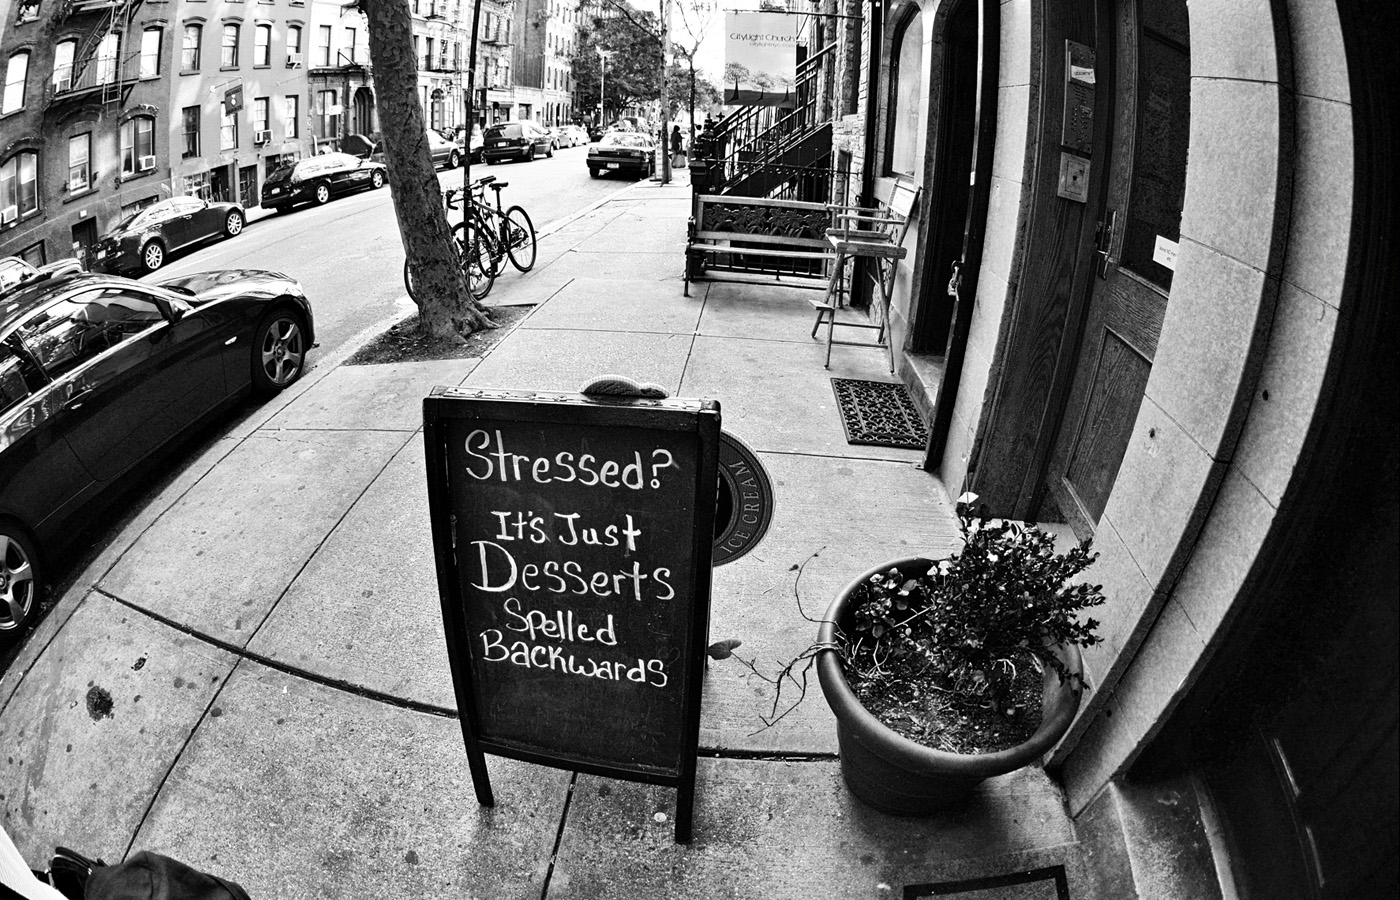 CityLight Church
Stressed?
It's Just
Desserts
Spelled
Backwards
ICE CREAM